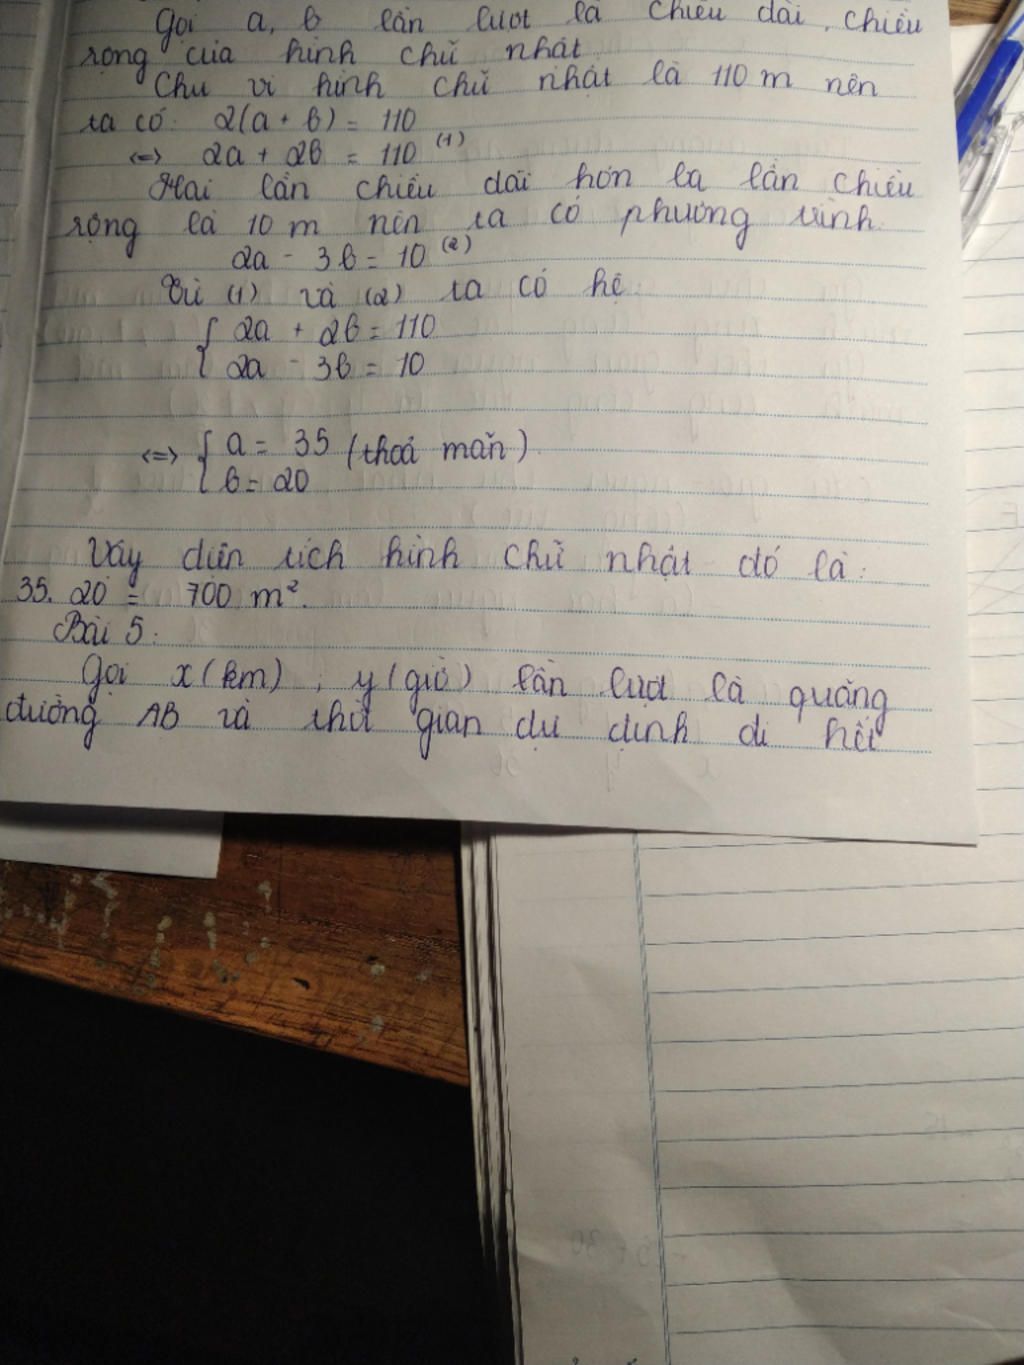 Gọi a, b lần lượt là chiều dài, chiều
rộng của hình chữ nhật
Chu vi hình chữ nhật là 110 m nên
ta có: 2(a + b) = 110
<=> 2a + 2b = 110 (1)
Hai lần chiều dài hơn ba lần chiều
rộng là 10 m nên ta có phương trình:
2a - 3b = 10 (2)
Từ (1) và (2) ta có hệ:
{ 2a + 2b = 110
2a - 3b = 10
<=> { a = 35 (thoả mãn)
b = 20
Vậy diện tích hình chữ nhật đó là:
35. 20 = 700 m².
Bài 5:
Gọi x (km), y (giờ) lần lượt là quãng
đường AB và thời gian dự định đi hết